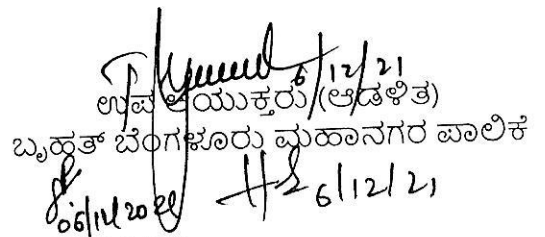 6/12/21
ಉಪ ಆಯುಕ್ತರು (ಆಡಳಿತ)
ಬೃಹತ್ ಬೆಂಗಳೂರು ಮಹಾನಗರ ಪಾಲಿಕೆ
06/12/2021 6/12/21